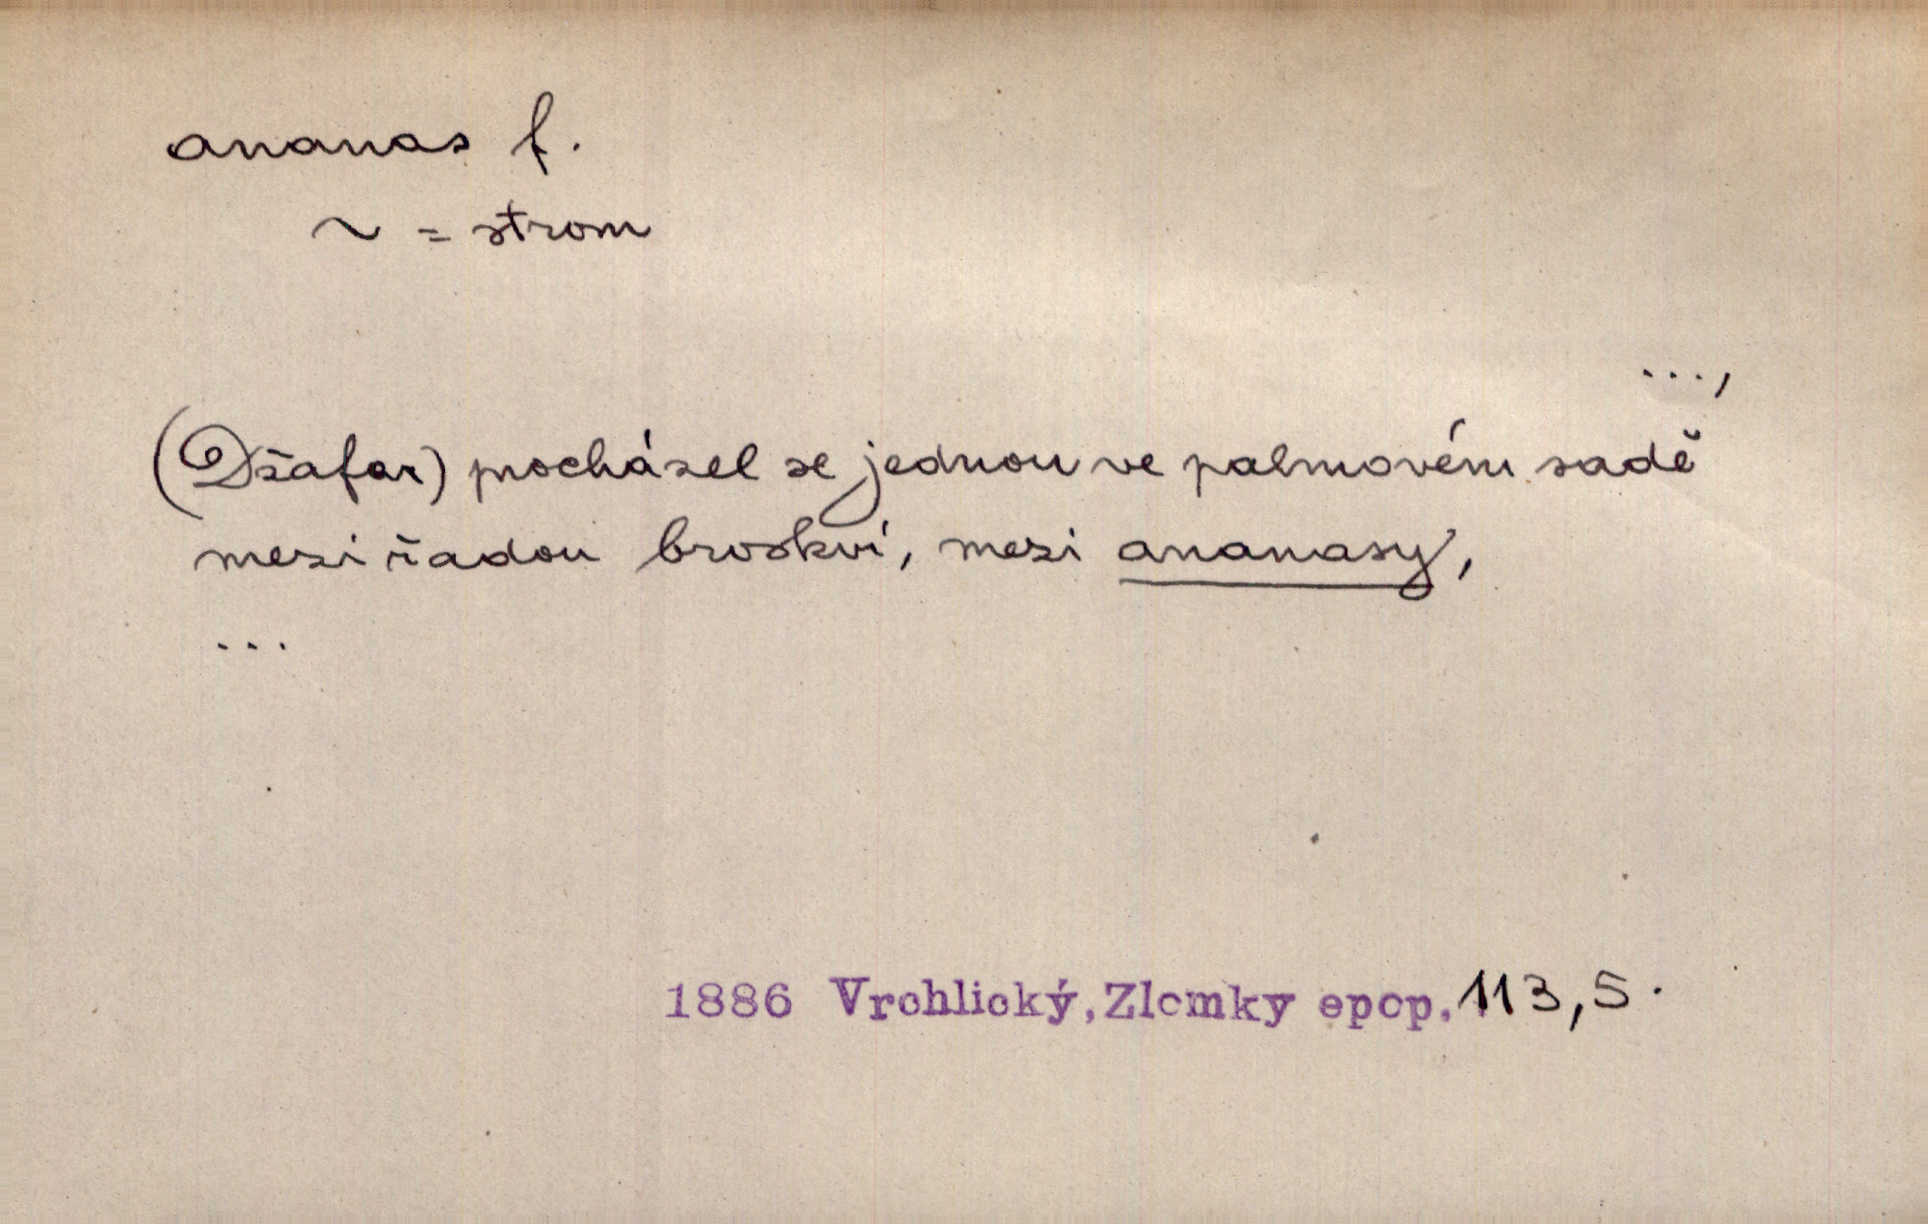 ananas f.
~ = strom
...,
(Džafar) procházel se jednou ve palmovém sadě
mezi řadou broskví, mezi ananasy,
...
1886 Vrchlický, Zlomky epop. 113,5.